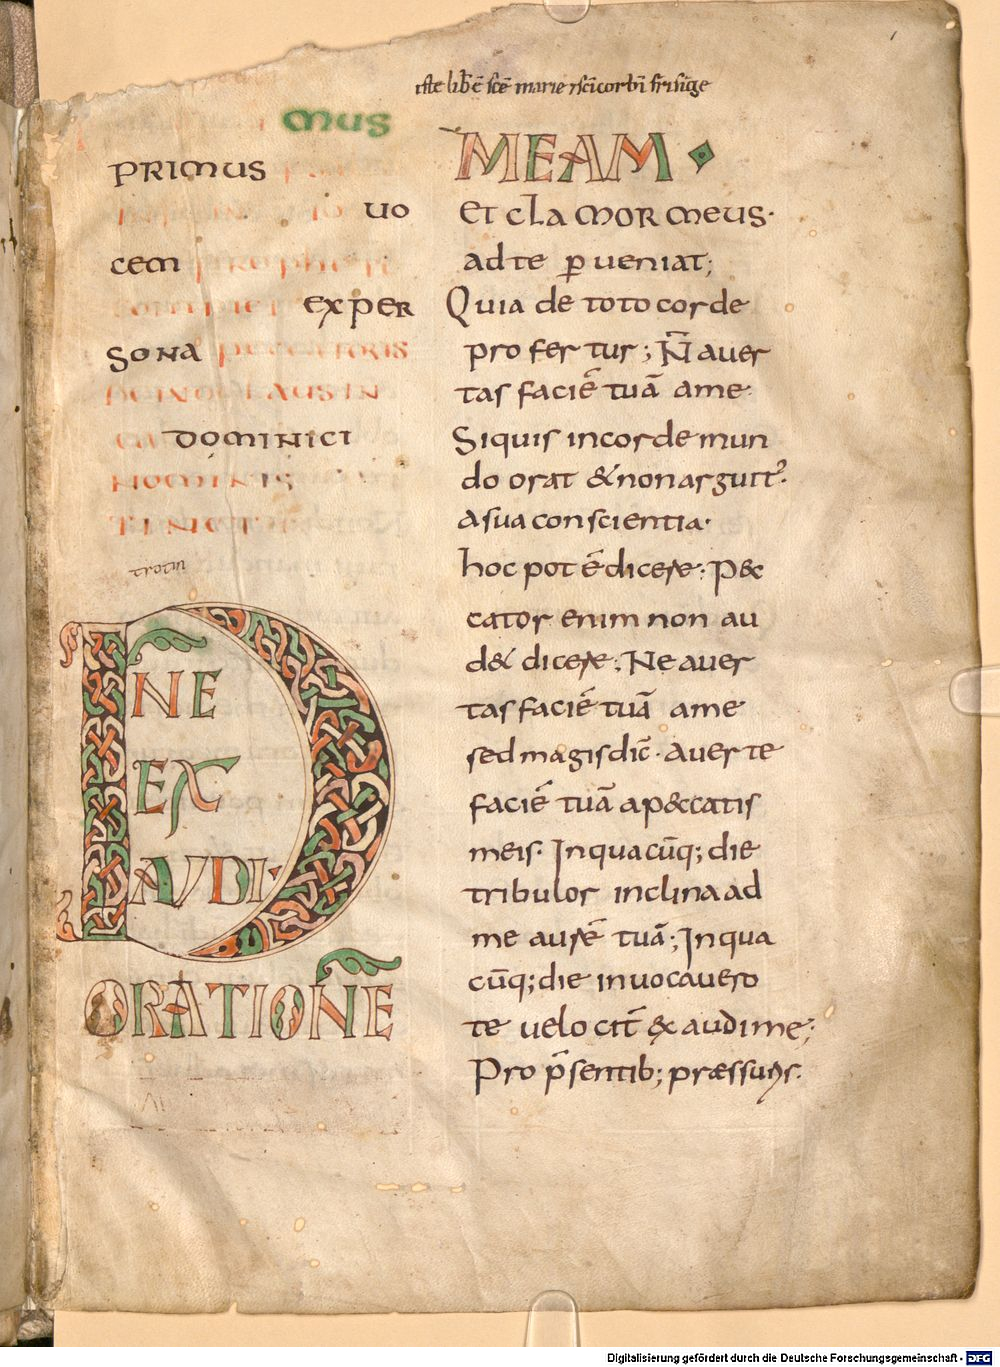 iste lib̅ ē scē marie ⁊ sc̄i corb̄i frisīge
mus
PRIMUS
UO
cem
EXPER
SONA
DOMINICI
DN̄E
EX
AUDI·
ORATIONĒ
MEAM
et cla mor meus·
ad te p̲ ueniat;
Quia de toto corde
pro fer tur; N̄ auer
tas faciē tuā a me·
Si quis in corde mun
do orat & non arguit᷒·
a sua conscientia·
hoc pot ē dicere; P&
cator enim non au
d& dicere; Ne auer
tas faciē tuā a me
sed magis dic̄· auer te
faciē tuā a p&catis
meis· In qua cūq; die
tribulor inclina ad
me aurē tuā; In qua
cūq; die inuocauero
te uelocit̄ exaudi me;
Pro p̄sentib; præssuris·
Digitalisierung gefördert durch die Deutsche Forschungsgemeinschaft - DFG